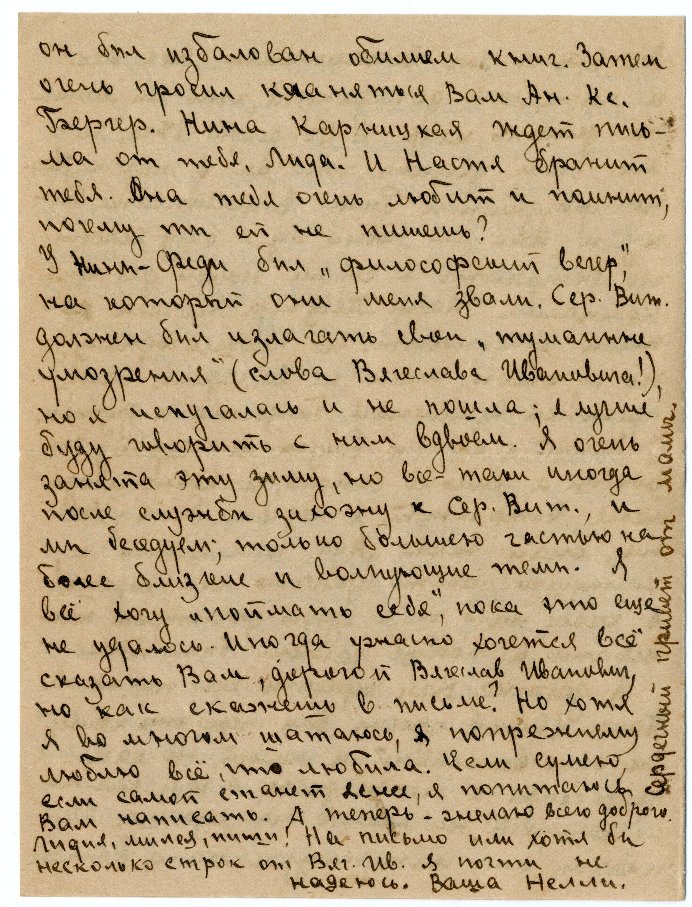 он был избалован обилием книг. Затем
очень просил кланяться Вам Ан. Кс.
Бергер. Нина Карницкая ждет пись-
ма от тебя, Лида. И Настя бранит
тебя. Она тебя очень любит и помнит,
почему ты ей не пишешь?
У Нины-Феди был „философский вечер",
на который они меня звали. Сер. Вит.
должен был излагать свои „туманные
умозрения" (слова Вячеслава Ивановича!),
но я испугалась и не пошла; я лучше
буду говорить с ним вдвоём. Я очень
занята эту зиму, но всё-таки иногда
после службы захожу к Сер. Вит., и
мы беседуем; только большею частью на
более близкие и волнующие темы. Я
всё хочу „поймать себя", пока это еще
не удалось. Иногда ужасно хочется всё
сказать Вам, дорогой Вячеслав Иванович,
но как скажешь в письме? Но хотя
я во многом шатаюсь, я попрежнему
люблю всё, что любила. Если сумею,
если самой станет яснее, я попытаюсь
Вам написать. А теперь - желаю всего доброго.
Лидия, милая, пиши! На письмо или хотя бы
несколько строк от Вяч. Ив. я почти не
надеюсь. Ваша Нелли.
Сердечный привет от мамы.